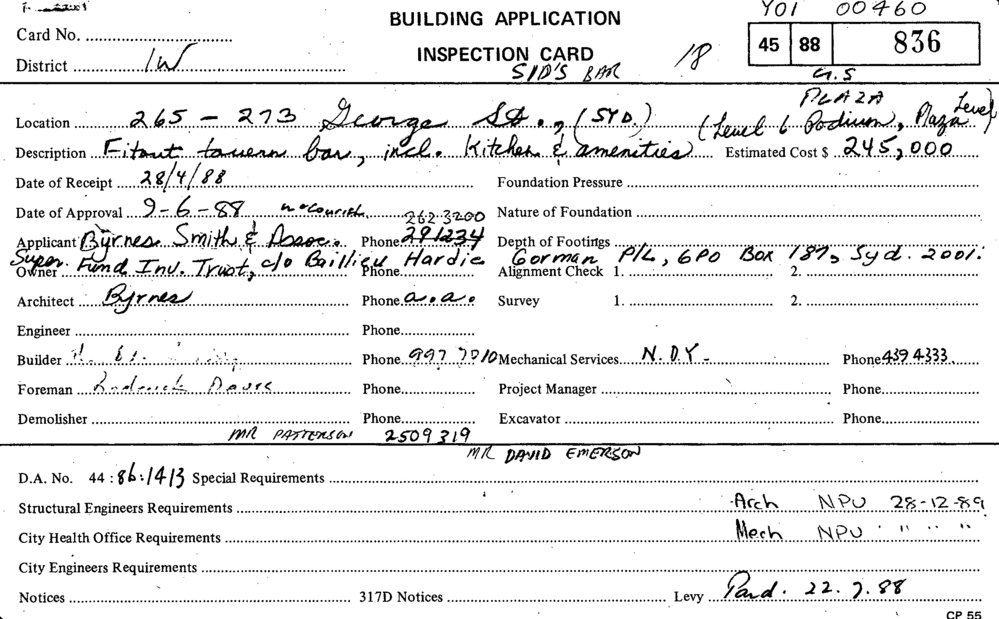 BUILDING APPLICATION Y01 00460
Card No. INSPECTION CARD 18 45 88 836
District 1W SID'S BAR G.S
PLAZA
Location 265 – 273 George St., (SYD.) (Level 6 Podium, Plaza Level)
Description Fitout tavern bar, incl. Kitchen & amenities Estimated Cost $ 245,000
Date of Receipt 28/4/88 Foundation Pressure
Date of Approval 9-6-88 262 3200 Nature of Foundation
Applicant Byrnes Smith & Assoc. Phone 291234 Depth of Footings
Super. Fund Inv. Trust, c/o Baillieu Hardie Gorman P/L, GPO Box 187, Syd. 2001.
Owner Phone Alignment Check 1. 2.
Architect Byrnes Phone a.a. Survey 1. 2.
Engineer Phone
Builder Phone 997 7010 Mechanical Services N.D.Y- Phone 439 4333
Foreman Roderick Davis Phone Project Manager Phone
Demolisher Phone Excavator Phone
MR PATTERSON 2509319
MR DAVID EMERSON
D.A. No. 44 : 86:1413 Special Requirements
Structural Engineers Requirements Arch NPU 28-12-89
City Health Office Requirements Mech NPU " " "
City Engineers Requirements
Notices 317D Notices Levy Paid. 22.7.88
CP 55